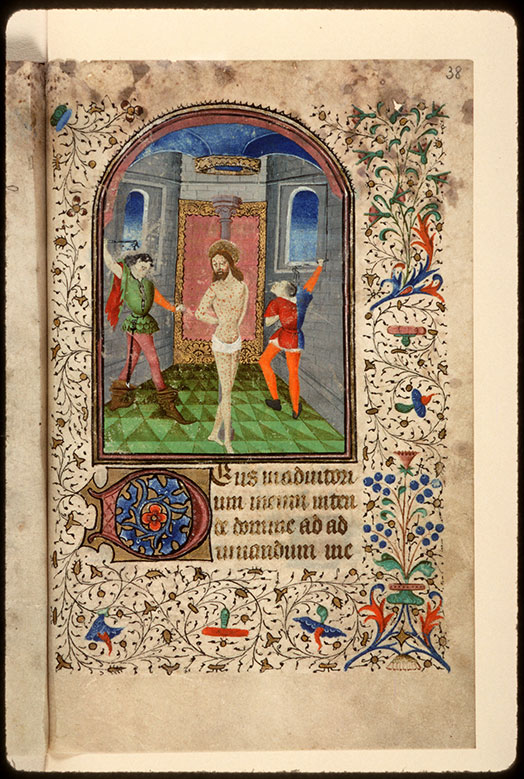 38
Deus in adiutori
um meum inten
te domine ad ad
iuuandum me